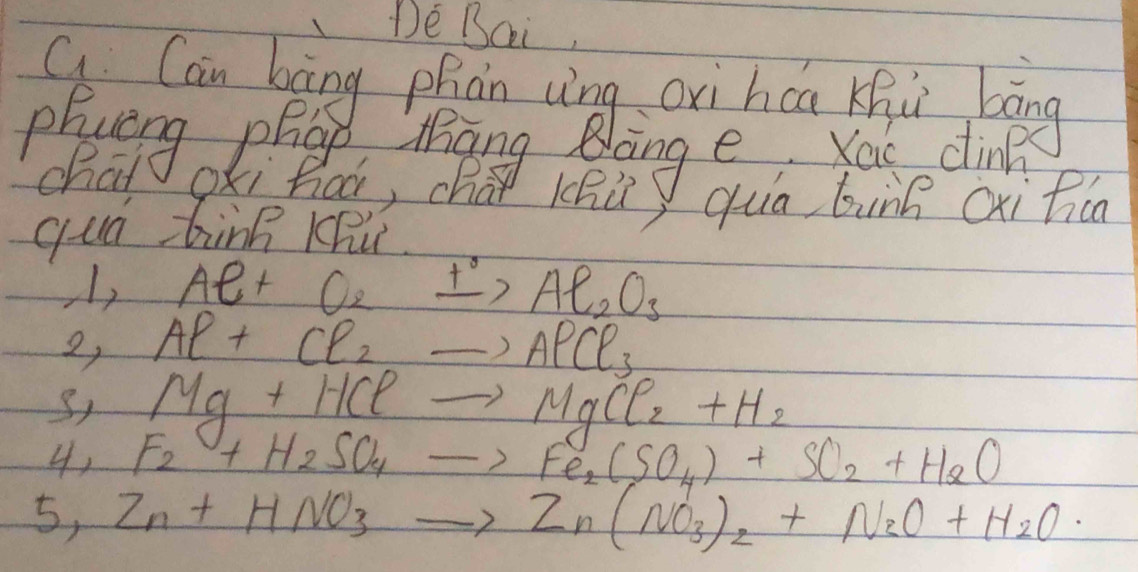 Đề Bài.
C1: Cân bằng phản ứng oxi hoá khử bằng
phương pháp thăng bằng e. Xác định
chất oxi hoá, chất khử, quá trình oxi hóa
quá trình khử.
1, Al + O₂ —t°→ Al₂O₃
2, Al + Cl₂ → AlCl₃
3, Mg + HCl → MgCl₂ + H₂
4, F₂ + H₂SO₄ → Fe₂(SO₄) + SO₂ + H₂O
5, Zn + HNO₃ → Zn(NO₃)₂ + N₂O + H₂O.